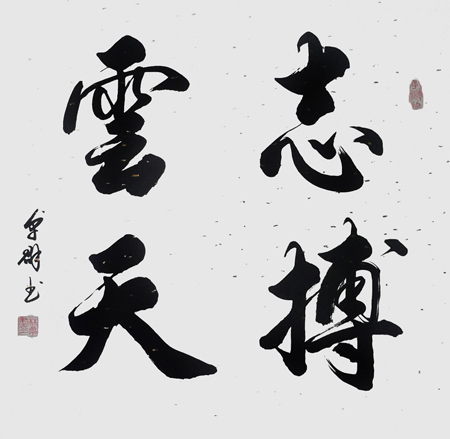 志搏
雲天